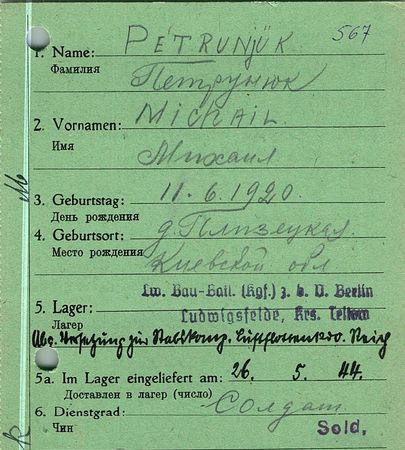 567
1. Name: PETRUNJUK
Фамилия Петрунюк
2. Vornamen: MICHAIL
Имя Михаил
3. Geburtstag: 11.6.1920.
День рождения
4. Geburtsort: д.
Место рождения Киевской обл
Lw. Bau-Batl. (Kgf.) z. b. V. Berlin
5. Lager: Ludwigsfelde, Krs. Teltow
Лагерь
Versetzung zur Stabskomp. Luftflottenkdo. Reich
5a. Im Lager eingeliefert am: 26. 5. 44.
Доставлен в лагерь (число)
6. Dienstgrad: Солдат
Чин Sold.